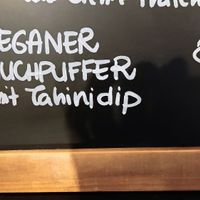 EGANER
UCHPUFFER
mit Tahinidip